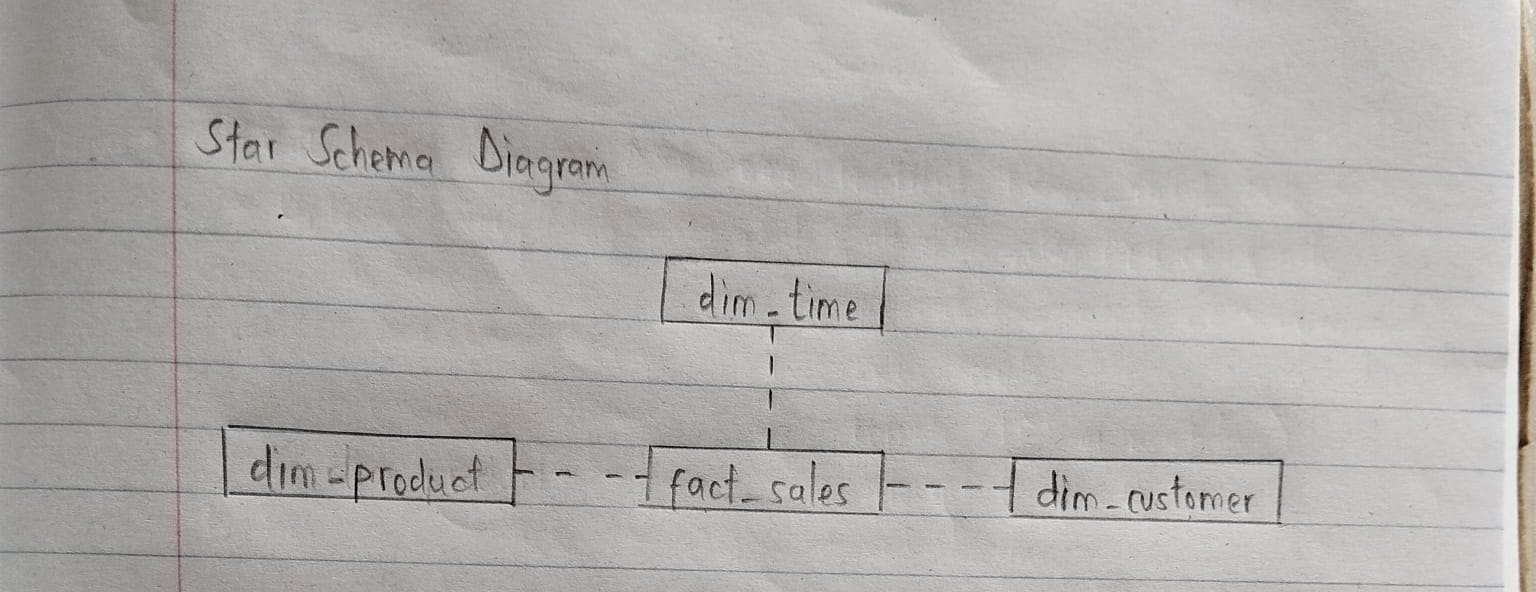 Star Schema Diagram
dim_time
dim_product fact_sales dim_customer